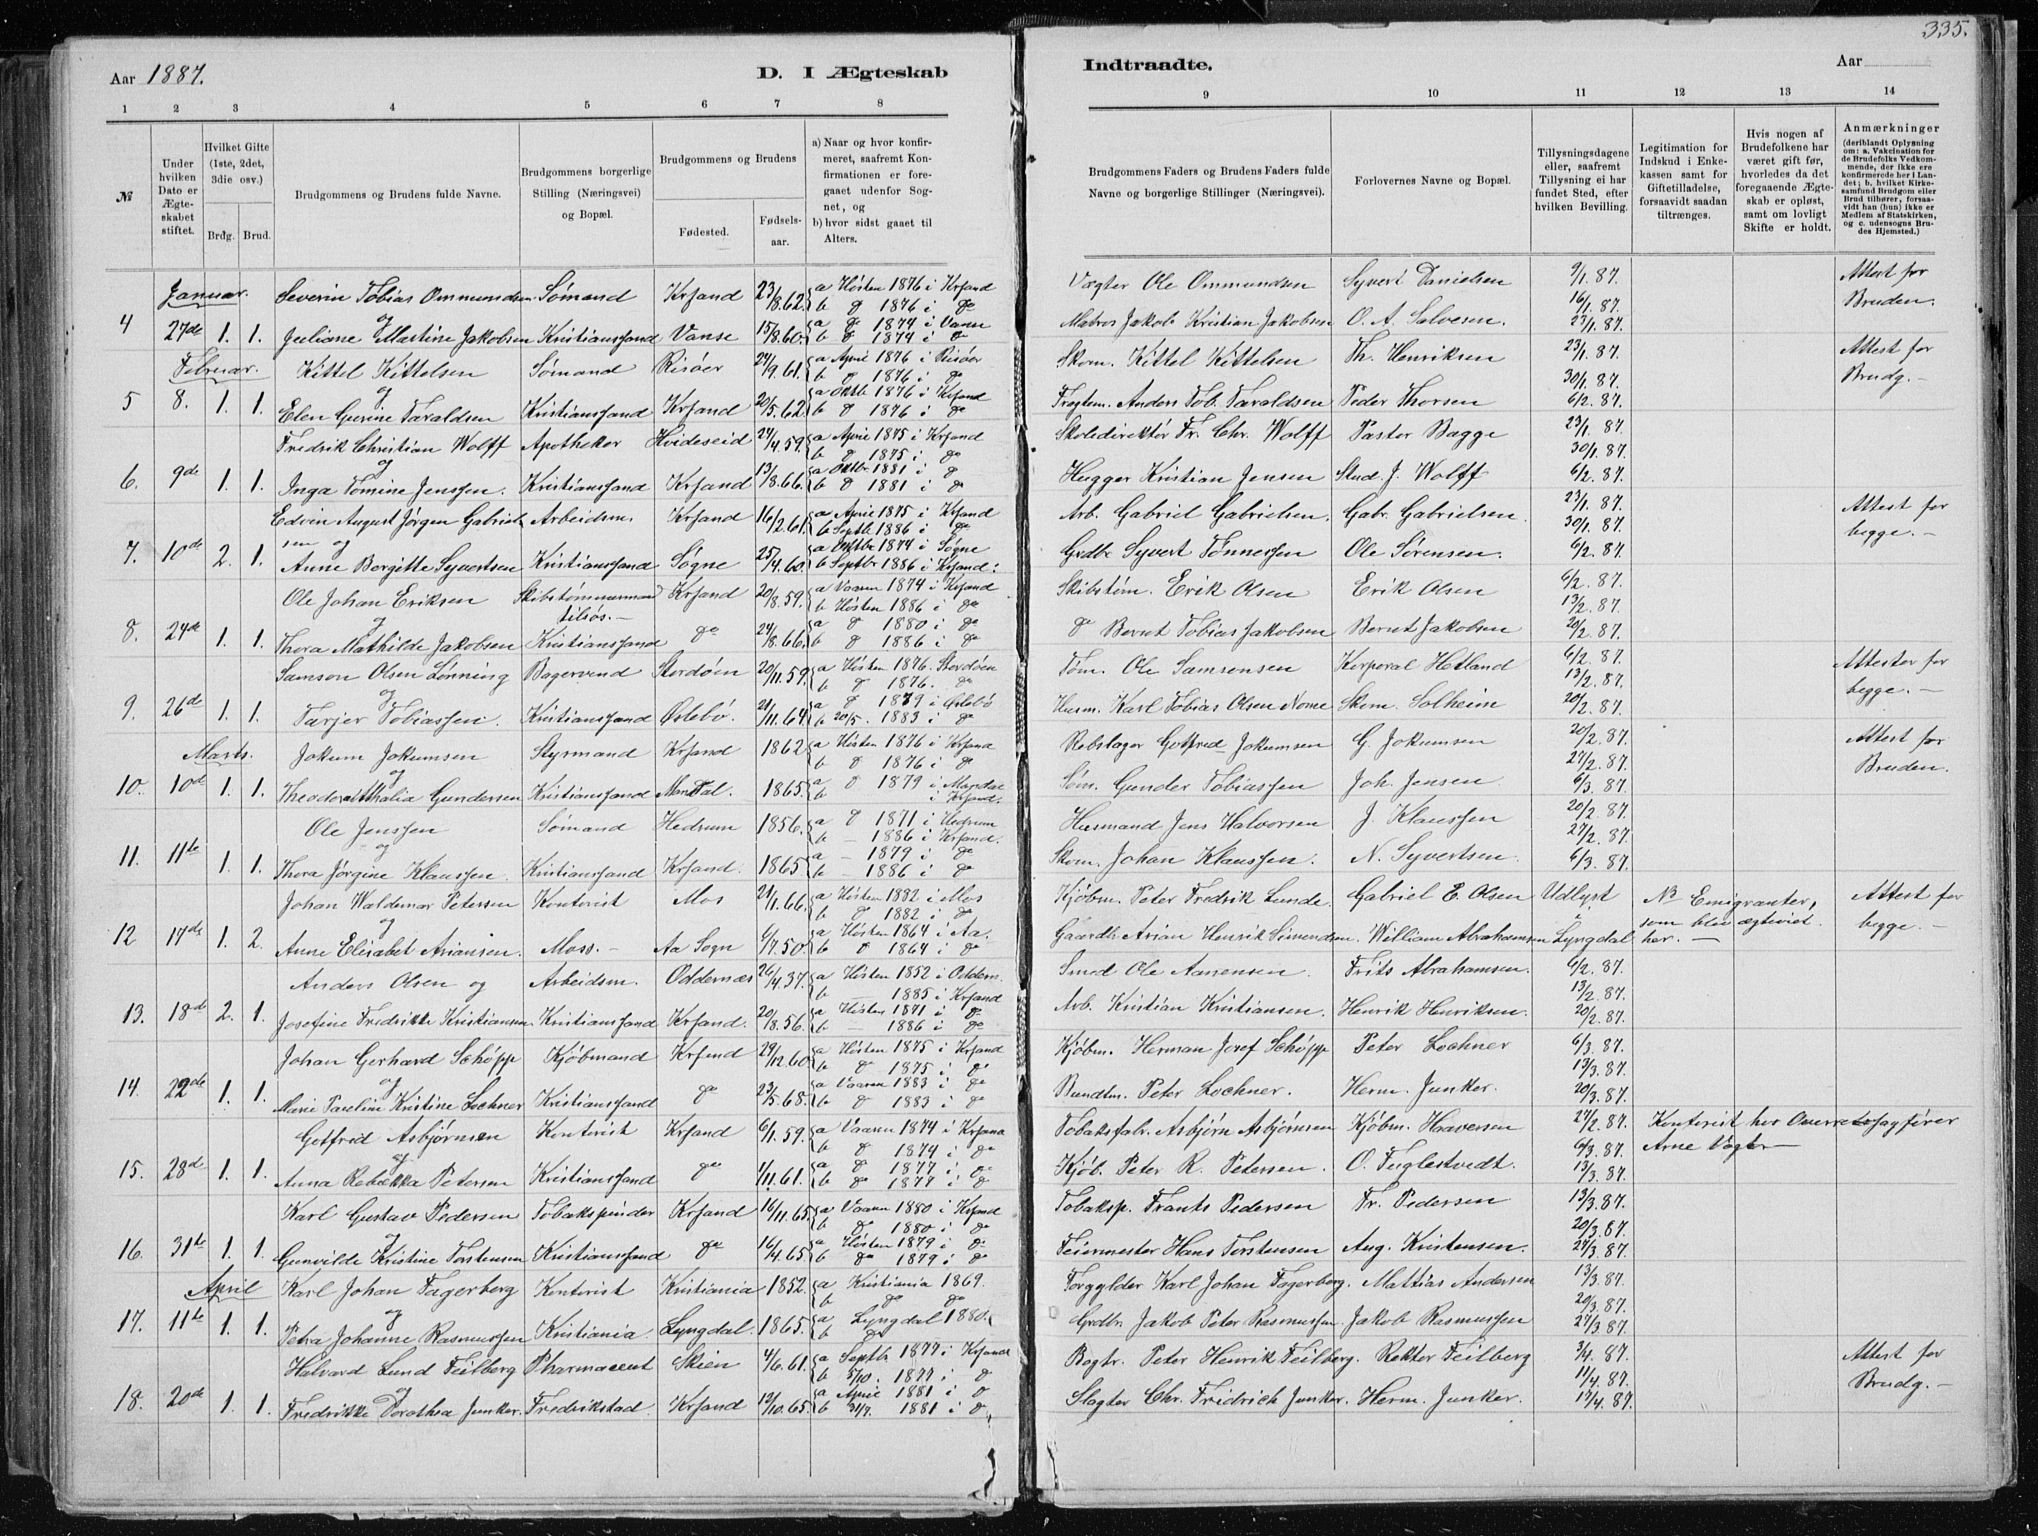 335.
Aar 1887.
D. I Ægteskab
Indtraadte.
Aar
1 2 3 4 5 6 7 8
9 10 11 12 13 14
№
Under hvilken Dato er Ægteskabet stiftet.
Hvilket Gifte (1ste, 2det, 3die osv.)
Brdg. Brud.
Brudgommens og Brudens fulde Navne.
Brudgommens borgerlige Stilling (Næringsvei) og Bopæl.
Brudgommens og Brudens
Fødested. Fødsels-aar.
a) Naar og hvor konfirmeret, saafremt Konfirmationen er foregaaet udenfor Sognet, og
b) hvor sidst gaaet til Alters.
Brudgommens Faders og Brudens Faders fulde Navne og borgerlige Stillinger (Næringsvei).
Forlovernes Navne og Bopæl.
Tillysningsdagene eller, saafremt Tillysning ei har fundet Sted, efter hvilken Bevilling.
Legitimation for Indskud i Enkekassen samt for Giftetilladelse, forsaavidt saadan tiltrænges.
Hvis nogen af Brudefolkene har været gift før, hvorledes da det foregaaende Ægteskab er opløst, samt om lovligt Skifte er holdt.
Anmærkninger (deriblandt Oplysning om: a. Vakcination for de Brudefolks Vedkommende, der ikke ere konfirmerede her i Landet; b. hvilket Kirkesamfund Brudgom eller Brud tilhører, forsaavidt han (hun) ikke er Medlem af Statskirken, og c. udensogns Brudes Hjemsted.)
Januar. Severin Tobias Ommundsen Sømand Krsand 23/8.62. a Høsten 1876 i Krsand b do 1876 i do Vægter Ole Ommundsen Syvert Danielsen 9/1.87. 16/1.87. Attest for Bruden.
4 27de 1. 1. og Juliane Martine Jakobsen Kristianssand Vanse 15/8.60. a do 1874 i Vanse b do 1874 i do Matros Jakob Kristian Jakobsen O. A. Salvesen. 23/1.87.
Februar. Kittel Kittelsen Sømand Risøer 24/9.61. a April 1876 i Risøer b do 1876 i do Skom. Kittel Kittelsen Th. Henriksen 23/1.87. 30/1.87. Attest for Brudg.
5 8. 1. 1. og Elen Gurine Taraldsen Kristianssand Krsand 20/5.62. a Oktb 1876 i Krsand b do 1876 i do Fragtem. Anders Tob. Taraldsen Peder Thorsen 6/2.87.
Fredrik Christian Wolff Apotheker Hvideseid 24/4.59. a April 1875 i Krsand b do 1875 i do Skoledirektör Fr. Chr. Wolff Pastor Bagge 23/1.87. 30/1.87.
6. 9de 1. 1. og Inga Tomine Jenssen. Kristianssand Krsand 13/8.66. a Oktbr 1881 i do b do 1881 i do Hugger Kristian Jensen Stud. J. Wolff 6/2.87.
Edvin August Jörgen Gabrielsen og Arbeidsm. Krsand 16/2.61. a April 1875 i Krsand b Septb 1886 i do Arb. Gabriel Gabrielsen. Gabr. Gabrielsen. 23/1.87. 30/1.87. Attest for begge.
7. 10de 2. 1. Anne Bergitte Syvertsen Kristianssand Søgne 25/4.60. a Oktbr 1874 i Søgne b Septbr 1886 i Krsand. Grdbr Syvert Tønnessen Ole Sørensen. 6/2.87.
Ole Johan Eriksen Skibstømmermand tilsøs. Krsand 20/8.59. a Vaaren 1874 i Krsand b Høsten 1886 i do Skibstøm. Erik Olsen Erik Olsen 6/2.87. 13/2.87.
8. 24de 1. 1. og Thora Mathilde Jakobsen Kristianssand do 24/8.66. a do 1880 i do b do 1886 i do do Bernt Tobias Jakobsen Bernt Jakobsen 20/2.87.
Samson Olsen Lønning Bagersvend Stordøen 20/11.59. a Høsten 1876. Stordøen b do 1876. do Tøm. Ole Samsonsen Korporal Hetland 6/2.87. 13/2.87. Attester for begge.
9. 26de 1. 1. og Tarjer Tobiassen. Kristianssand Øslebø. 21/11.64. a do 1879 i Øslebø b 20/5. 1883 i do Husm. Karl Tobias Olsen Nome Skom. Solheim 20/2.87.
Marts. Jokum Jokumsen Styrmand Krsand 1862 a Høsten 1876 i Krsand b do 1876 i do Rebslager Gotfred Jokumsen G. Jokumsen 20/2.87. 27/2.87. Attest for Bruden.
10. 10de 1. 1. og Theodora Athalia Gundersen Kristianssand Mandal. 1865. a do 1879 i Mandal b i Krsand. Søm. Gunder Tobiassen Joh. Jensen 6/3.87.
Ole Jenssen Sømand Hedrum 1856. a do 1871 i Hedrum b — 1886 i Krsand. Husmand Jens Halvorsen J. Klaussen 20/2.87. 27/2.87.
11. 11te 1. 1. og Thora Jørgine Klaussen. Kristianssand Krsand. 1865 a — 1879 i do b — 1886 i do Skom. Johan Klaussen. N. Syvertsen. 6/3.87.
Johan Waldemar Petersen Kontorist Mos 21/1.66. a Høsten 1882 i Mos b do 1882 i do Kjöbm. Peter Fredrik Lunde. Gabriel E. Olsen Udlyst NB Emigranter, som blev ægteviet her. Attest for begge.
12 17de 1. 2. og Anne Elisabet Ariansen. Moss. Aa Sogn 6/7.50. a Høsten 1864 i Aa. b do 1864 i do Gaardb. Arian Henrik Simendsen. William Abrahamsen i Lyngdal
Anders Olsen og Arbeidsm. Oddernæs 26/4.37. a Høsten 1852 i Oddern. b — 1885 i Krsand Smed Ole Aanensen. Frits Abrahamsen. 6/2.87. 13/2.87.
13. 18de 2. 1. Josefine Fredrikke Kristiansen Kristianssand Krsand. 20/8.56. a Høsten 1871 i do b — 1886 i do Arb. Kristian Kristiansen. Henrik Henriksen. 20/2.87.
Johan Gerhard Schøpp Kjöbmand Krsand 29/12.60. a Høsten 1875 i Krsand b do 1875 i do Kjöbm. Herman Josef Schøpp Peter Lochner 6/3.87. 13/3.87.
14. 22de 1. 1. og Marie Pauline Kristine Lochner Kristianssand do 23/5.68. a Vaaren 1883 i do b do 1883 i do Bundtm. Peter Lochner. Herm. Junker. 20/3.87.
Gotfred Asbjørnsen Kontorist Krsand 6/1.59. a Vaaren 1874 i Krsand b do 1874 i do Tobaksfabr. Asbjørn Asbjørnsen Kjöbm. Haaversen 27/2.87. 6/3.87. Kontorist hos Overretssagfører Arne Vogt
15. 28de 1. 1. og Anna Rebekka Petersen Kristianssand do 1/11.61. a do 1877 i do b do 1877 i do Kjöb. Peter R. Petersen. O. Fuglestvedt. 13/3.87.
Karl Gustav Pedersen Tobakspinder Krsand 16/11.65. a Vaaren 1880 i Krsand b do 1880 i do Tobaksp. Frants Pedersen Fr. Pedersen 13/3.87. 20/3.87.
16. 31te 1. 1. og Gunvilde Kristine Torstensen Kristianssand do 16/4.65. a Høsten 1879 i do b do 1879 i do Feiermester Hans Torstensen Aug. Kristensen. 27/3.87.
April Karl Johan Fagerberg Kontorist Kristiania 1852. a Kristiania 1869. b do do Forgylder Karl Johan Fagerberg. Mattias Andersen 13/3.87. 20/3.87.
17. 11te 1. 1. og Petra Johanne Rasmussen Kristiania. Lyngdal. 1865. a Lyngdal 1880. b do Grdbr. Jakob Peter Rasmussen. Jakob Rasmussen 27/3.87.
Halvard Lund Feilberg Pharmaceut Skien 4/6.61. a Septbr 1877 i Krsand b 5/10. 1877 i do Bogtr. Peter Henrik Feilberg. Rektor Feilberg 3/4.87. 11/4.87. Attest for Brudg.
18. 20de 1. 1. og Fredrikke Dorothea Junker. Fredrikstad. Krsand 13/10.65. a April 1881 i do b 31/7. 1881 i do Slagter Chr. Fridrich Junker. Herm. Junker. 17/4.87.